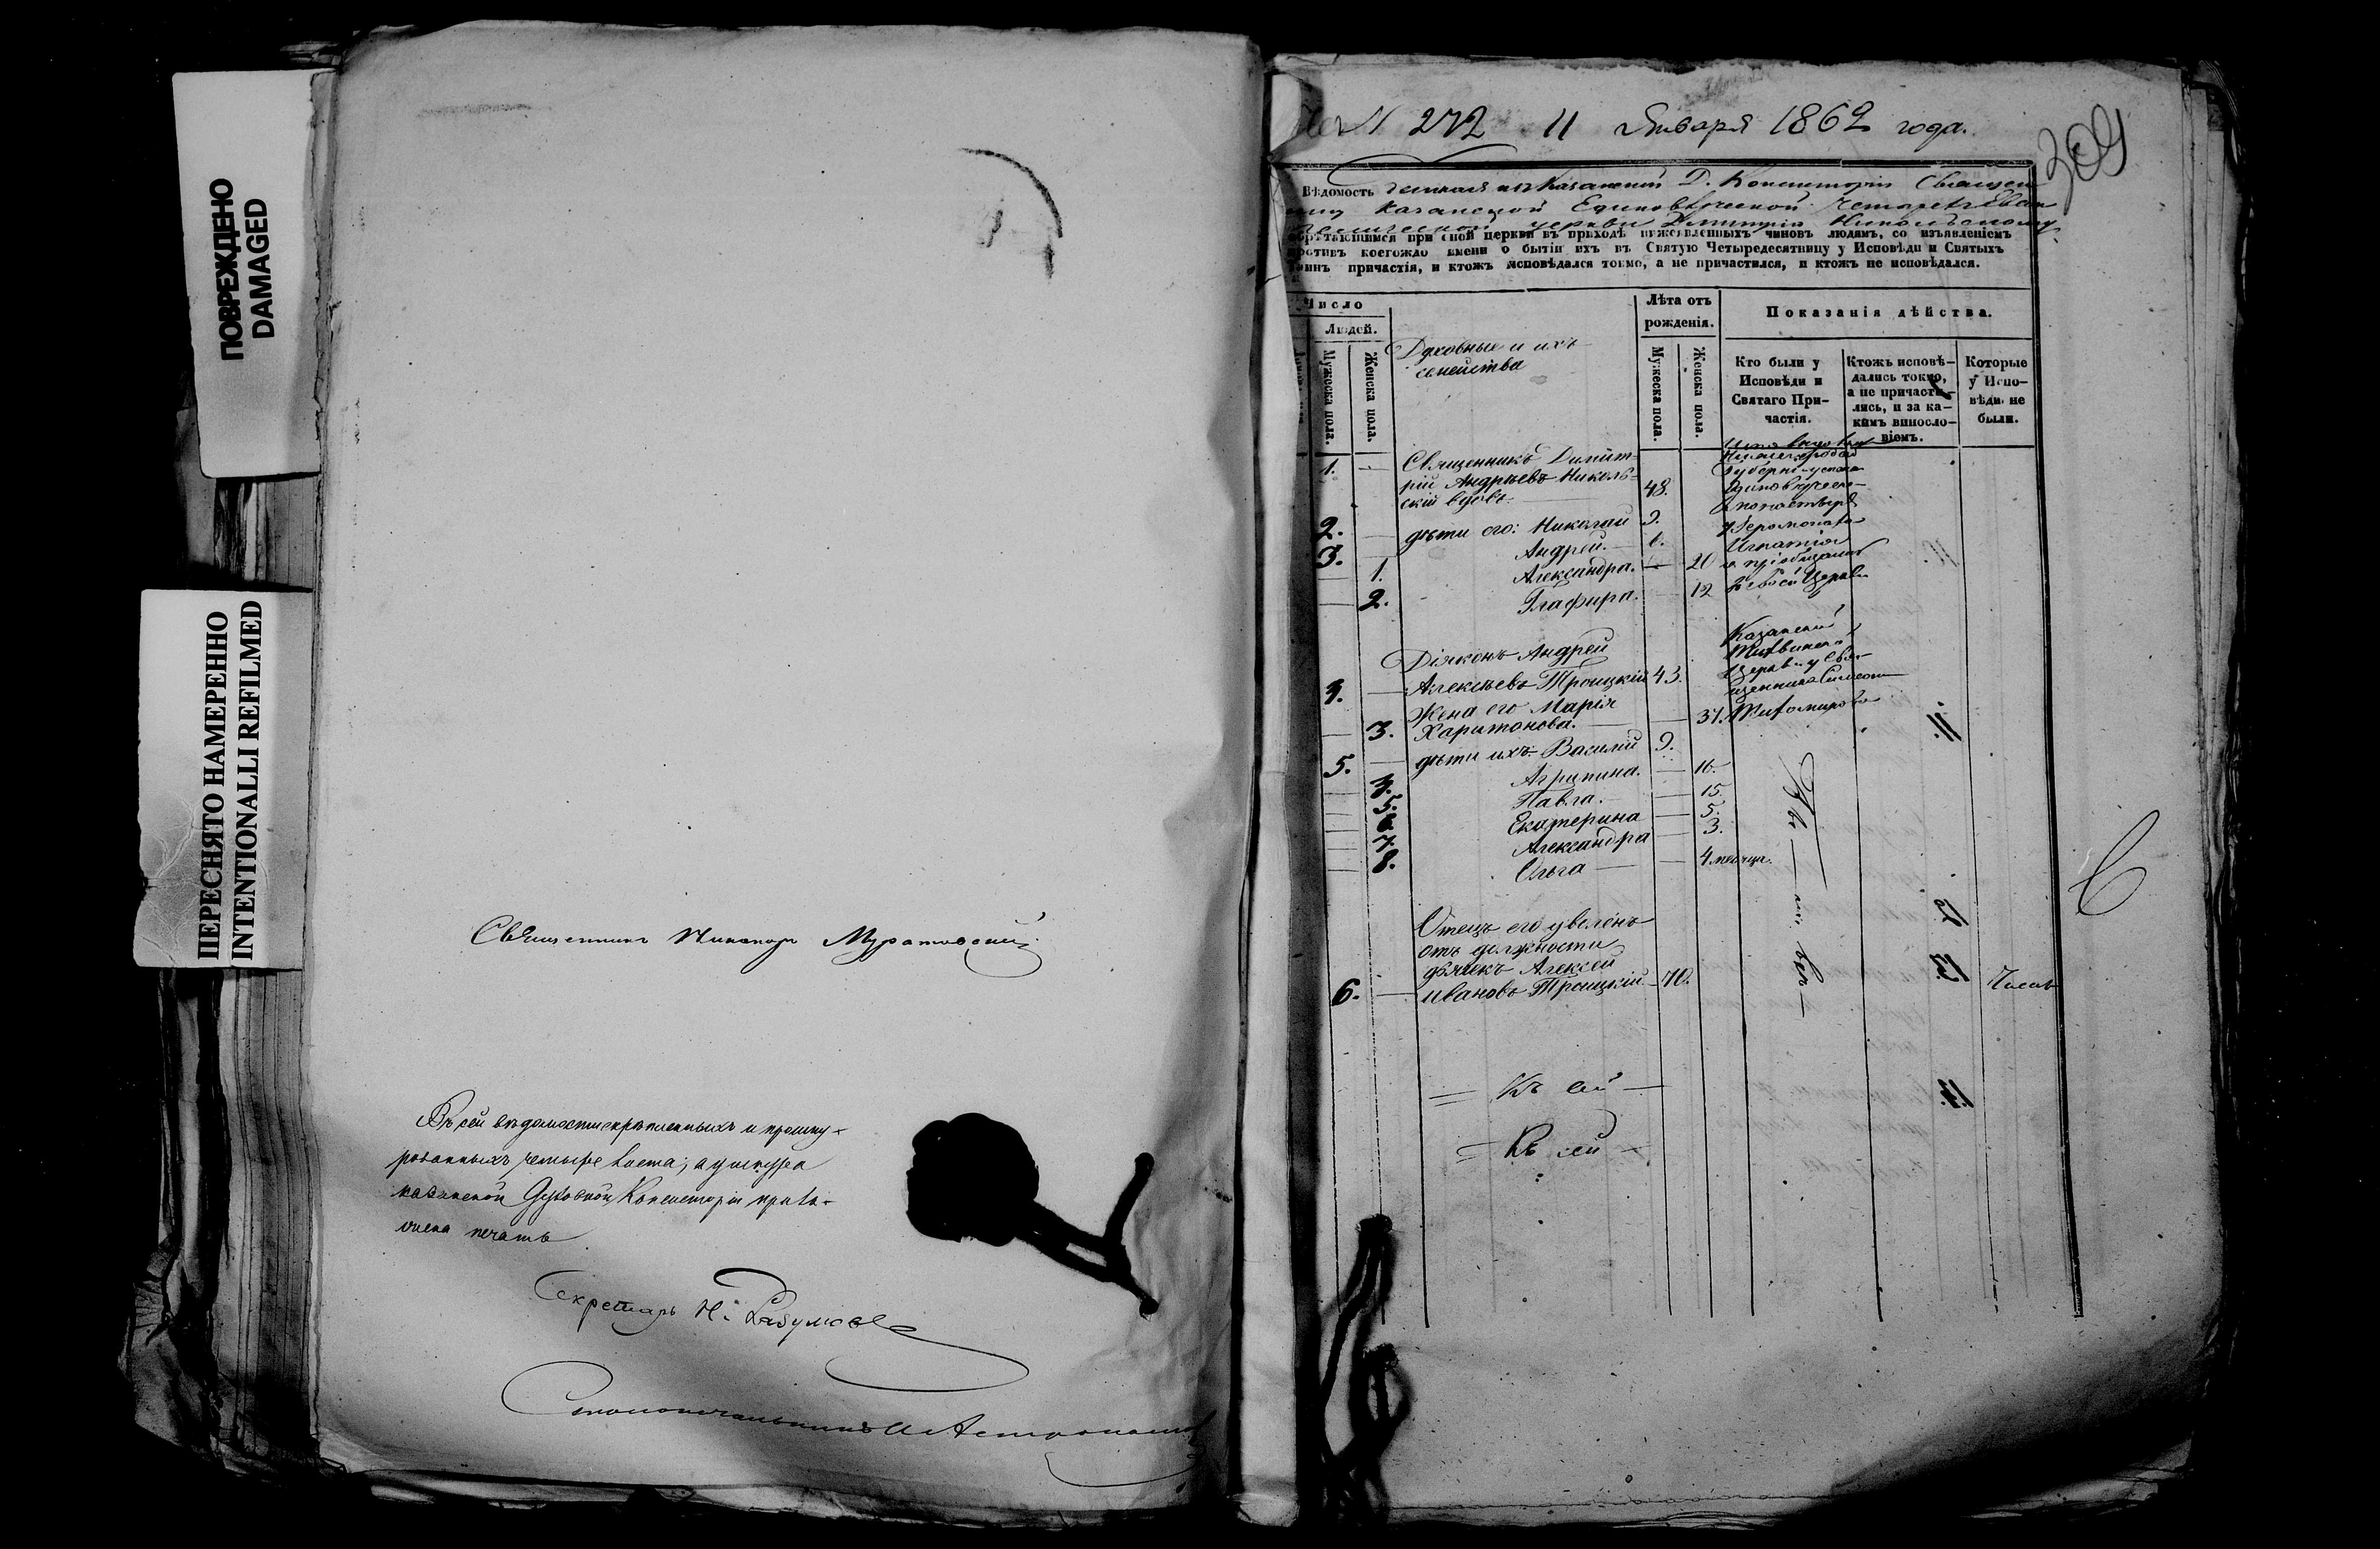 ПОВРЕЖДЕНО
DAMAGED
ПЕРЕСНЯТО НАМЕРЕННО
INTENTIONALLI REFILMED
Священникъ Никаноръ Муратовскій
Въ сей вѣдомости скрѣпленныхъ и прошну-
рованныхъ четыре листа; а у шнура
казанской Духовной Консисторіи прило-
жена печать
Секретарь Н. Разумовъ
Столоначальникъ
№ 272 11 Января 1862 года.
309
Вѣдомость данная изъ Казанской Д. Консисторіи Священ
нику Казанской Единовѣрческой Четырехъеван
гелической церкви Димитрію Никольскому
обрѣтающимся при оной церкви въ приходѣ нижеявленныхъ чиновъ людямъ, со изъявленіемъ
противъ коегождо имени о бытіи ихъ въ Святую Четыредесятницу у Исповѣди и Святыхъ
Таинъ причастія, и ктожъ исповѣдался токмо, а не причастился, и ктожъ не исповѣдался.
Число
Людей.
Мужеска пола.
Женска пола.
Духовные и ихъ
семейства
Лѣта отъ
рожденія.
Мужеска пола.
Женска пола.
Показанія дѣйства.
Кто были у
Исповѣди и
Святаго При-
частія.
Ктожъ исповѣ-
дались токмо,
а не причасти-
лись, и за ка-
кимъ виносло-
віемъ.
Которые
у Испо-
вѣди не
были.
1. — Священникъ Димит-
рій Андреевъ Николь-
скій вдовъ. 48.
2. — дѣти его: Николай 9.
3. Андрей. — 6.
1. Александра. — 20
2. Глафира. 12
Нижегородской
Губерніи
Единовѣрческ
монастырѣ
у Іеромонаха
Игнатія
и пріобщались
въ своей Церкви
Діяконъ Андрей
4. — Алексѣевъ Троицкій 43.
Жена его Марія
3. Харитонова. — 37.
Казанской
Церкви у Свя-
щенника
Тихомирова
5. — дѣти ихъ: Василій 9.
4. Агрипина. — 16.
5. Павла. — 15.
6. Екатерина — 5.
7. Александра — 3.
8. Ольга — 4 месяца.
Отецъ его уволенъ
отъ должности
дьячекъ Алексей
6. — Ивановъ Троицкій. 70.
= Къ сей —
= Къ сей —